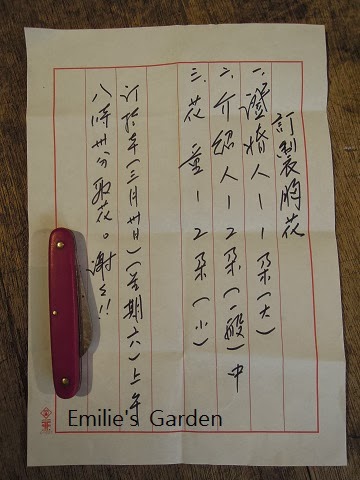 訂製胸花
一. 證婚人-1朵(大)
二. 介紹人-2朵(一般)中
三. 花 童-2朵(小)
訂於本(三)月卅日(星期六)上午
八時卅分取花。謝々!!
Emilie's Garden